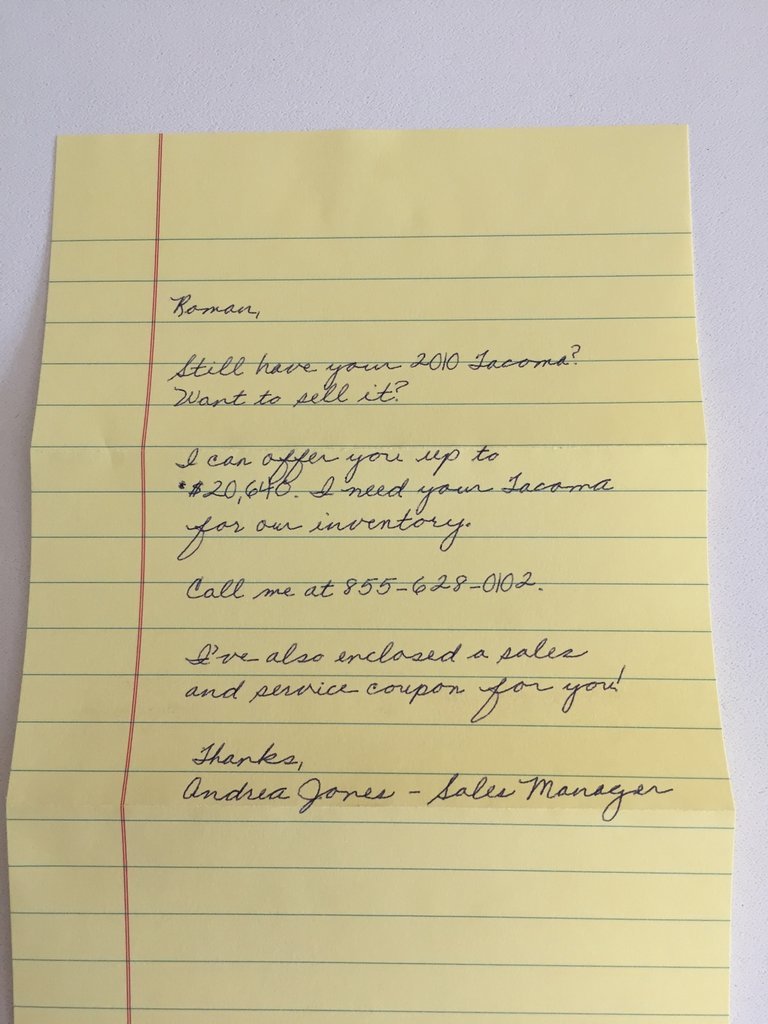 Roman,
Still have your 2010 Tacoma?
Want to sell it?
I can offer you up to
$20,640. I need your Tacoma
for our inventory.
Call me at 855-628-0102.
I've also enclosed a sales
and service coupon for you!
Thanks,
Andrea Jones - Sales Manager